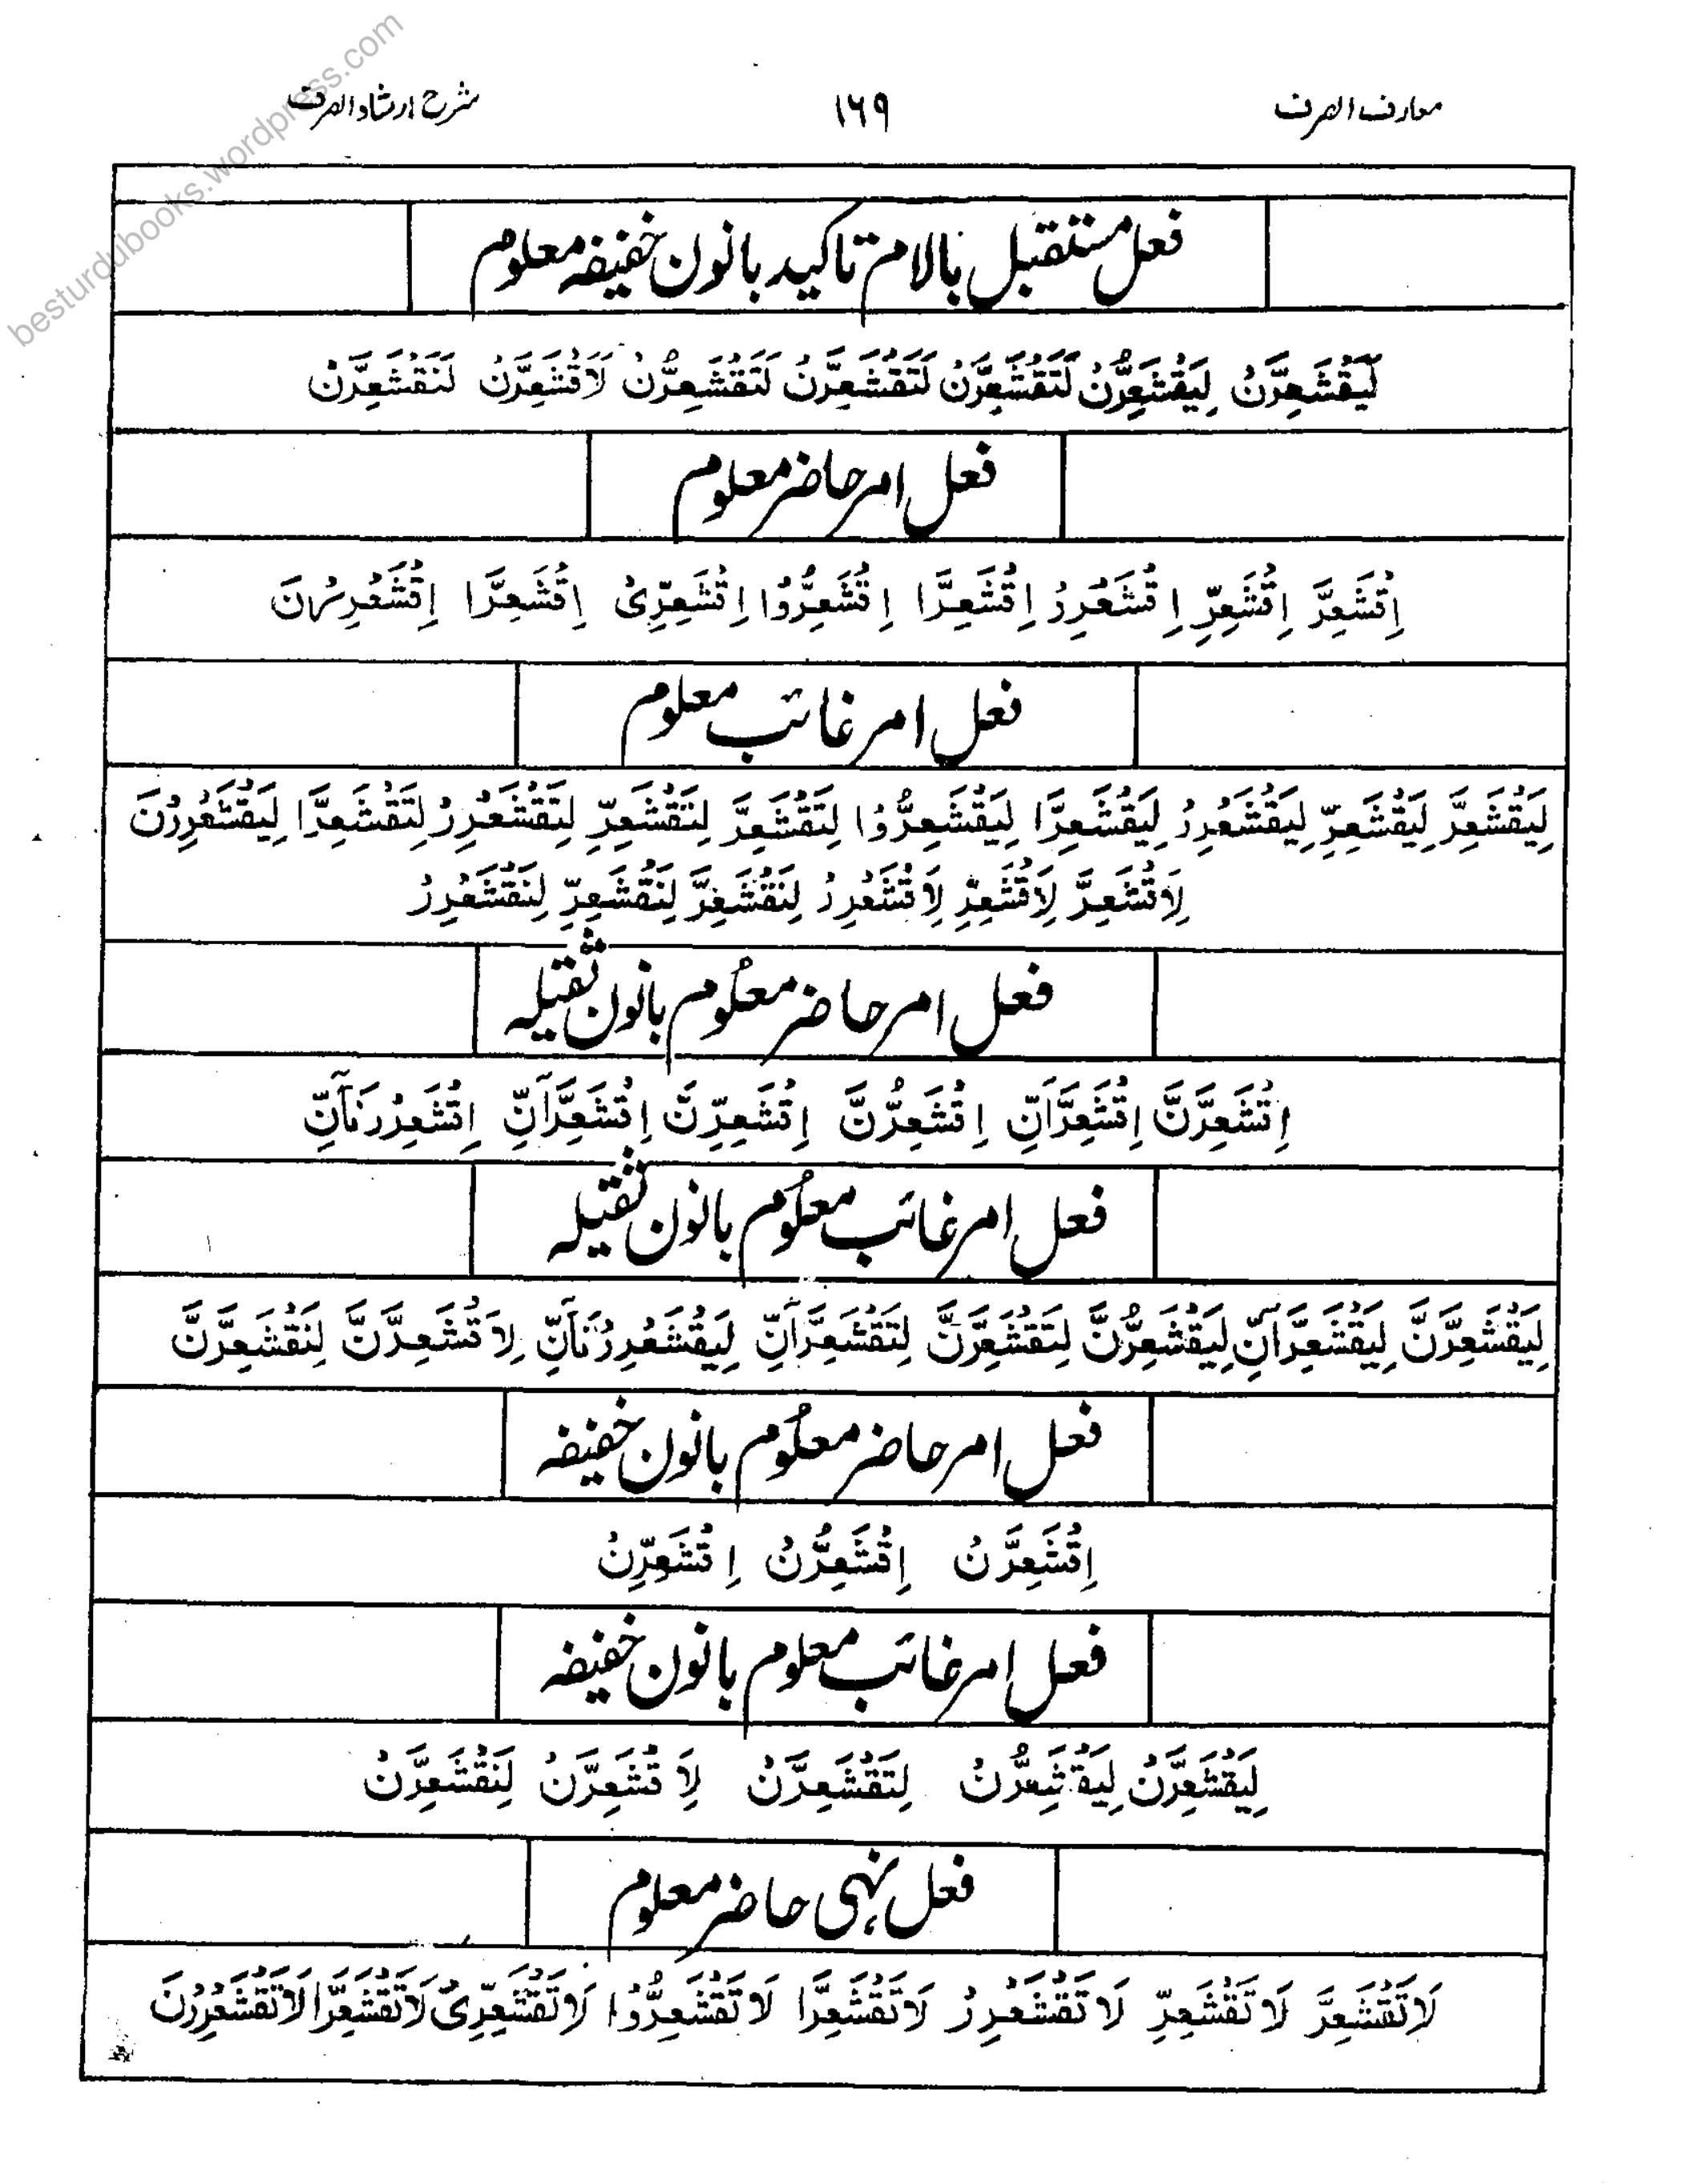 معارف الصرف ۱۶۹ شرح ارشاد الصرف
besturdubooks.wordpress.com
فعل مستقبل بالام تاکید بانون خفیفه معلوم
لَيَقْشَعِرَّنْ لَيَقْشَعِرُّنْ لَتَقْشَعِرَّنْ لَتَقْشَعِرَّنْ لَتَقْشَعِرُّنْ لَاَقْشَعِرَّنْ لَنَقْشَعِرَّنْ
فعل امر حاضر معلوم
اِقْشَعِرَّ اِقْشَعِرِّ اِقْشَعْرِرْ اِقْشَعِرَّا اِقْشَعِرُّوْا اِقْشَعِرِّىْ اِقْشَعِرَّا اِقْشَعْرِرْنَ
فعل امر غائب معلوم
لِيَقْشَعِرَّ لِيَقْشَعِرِّ لِيَقْشَعْرِرْ لِيَقْشَعِرَّا لِيَقْشَعِرُّوْا لِتَقْشَعِرَّ لِتَقْشَعِرِّ لِتَقْشَعْرِرْ لِتَقْشَعِرَّا لِيَقْشَعْرِرْنَ
لِاَقْشَعِرَّ لِاَقْشَعِرِّ لِاَقْشَعْرِرْ لِنَقْشَعِرَّ لِنَقْشَعِرِّ لِنَقْشَعْرِرْ
فعل امر حاضر معلُوم بانون ثقیله
اِقْشَعِرَّنَّ اِقْشَعِرَّآنِّ اِقْشَعِرُّنَّ اِقْشَعِرِّنَّ اِقْشَعِرَّآنِّ اِقْشَعْرِرْنَآنِّ
فعل امر غائب معلُوم بانون ثقیله
لِيَقْشَعِرَّنَّ لِيَقْشَعِرَّآنِّ لِيَقْشَعِرُّنَّ لِتَقْشَعِرَّنَّ لِتَقْشَعِرَّآنِّ لِيَقْشَعْرِرْنَآنِّ لِاَقْشَعِرَّنَّ لِنَقْشَعِرَّنَّ
فعل امر حاضر معلُوم بانون خفیفه
اِقْشَعِرَّنْ اِقْشَعِرُّنْ اِقْشَعِرِّنْ
فعل امر غائب معلوم بانون خفیفه
لِيَقْشَعِرَّنْ لِيَقْشَعِرُّنْ لِتَقْشَعِرَّنْ لِاَقْشَعِرَّنْ لِنَقْشَعِرَّنْ
فعل نہی حاضر معلوم
لَاتَقْشَعِرَّ لَاتَقْشَعِرِّ لَاتَقْشَعْرِرْ لَاتَقْشَعِرَّا لَاتَقْشَعِرُّوْا لَاتَقْشَعِرِّىْ لَاتَقْشَعِرَّا لَاتَقْشَعْرِرْنَ